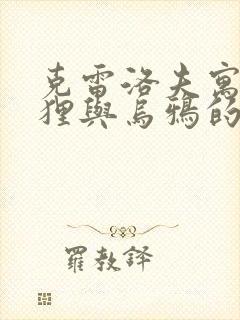 克雷洛夫寓
狸與烏鴉的
羅教譯